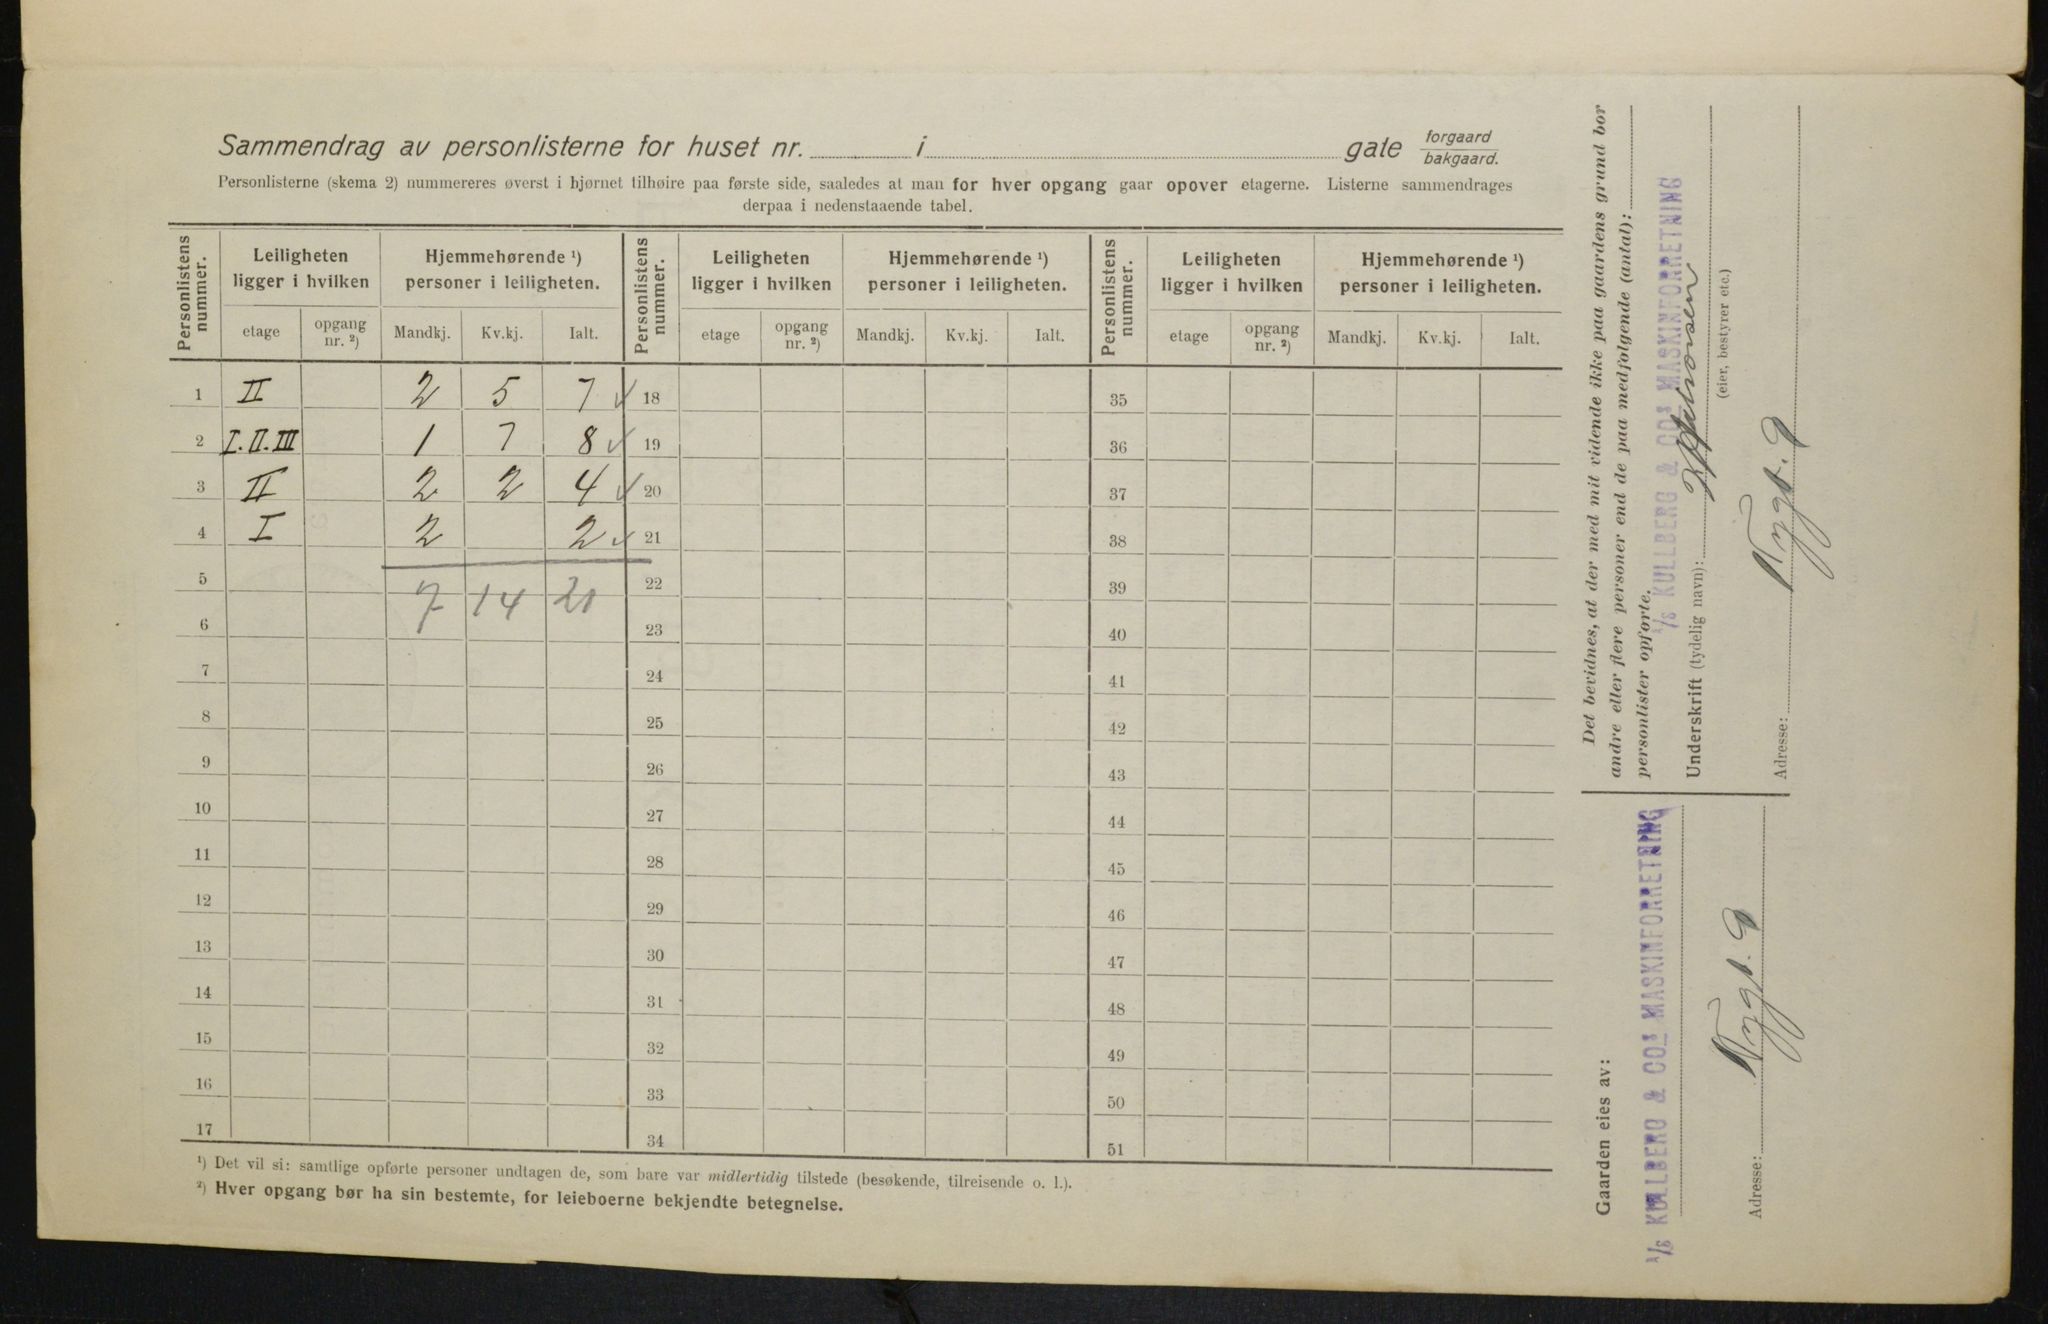 Sammendrag av personlisterne for huset nr. i gate forgaard
bakgaard.
Personlisterne (skema 2) nummereres øverst i hjørnet tilhøire paa første side, saaledes at man for hver opgang gaar opover etagerne. Listerne sammendrages
derpaa i nedenstaaende tabel.
Personlistens nummer. Leiligheten ligger i hvilken Hjemmehørende ¹) personer i leiligheten. Personlistens nummer. Leiligheten ligger i hvilken Hjemmehørende ¹) personer i leiligheten. Personlistens nummer. Leiligheten ligger i hvilken Hjemmehørende ¹) personer i leiligheten.
etage opgang nr. ²) Mandkj. Kv.kj. Ialt. etage opgang nr. ²) Mandkj. Kv.kj. Ialt. etage opgang nr. ²) Mandkj. Kv.kj. Ialt.
1 II 2 5 7 ✓ 18 35
2 I.II.III 1 7 8 ✓ 19 36
3 II 2 2 4 ✓ 20 37
4 I 2 2 ✓ 21 38
5 22 39
7 14 21
6 23 40
7 24 41
8 25 42
9 26 43
10 27 44
11 28 45
12 29 46
13 30 47
14 31 48
15 32 49
16 33 50
17 34 51
¹) Det vil si: samtlige opførte personer undtagen de, som bare var midlertidig tilstede (besøkende, tilreisende o. l.).
²) Hver opgang bør ha sin bestemte, for leieboerne bekjendte betegnelse.
Det bevidnes, at der med mit vidende ikke paa gaardens grund bor
andre eller flere personer end de paa medfølgende (antal):
personlister opførte.
A/S KULLBERG & COˢ MASKINFORRETNING
Underskrift (tydelig navn):
(eier, bestyrer etc.)
Adresse: Nygt. 9
Gaarden eies av:
A/S KULLBERG & COˢ MASKINFORRETNING
Adresse: Nygt. 9